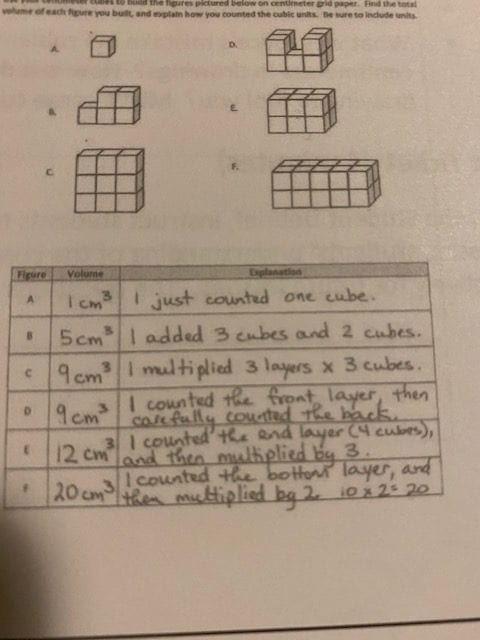 centimeter cubes to build the figures pictured below on centimeter grid paper. Find the total
volume of each figure you built, and explain how you counted the cubic units. Be sure to include units.
A. D.
B. E.
C. F.
Figure Volume Explanation
A 1 cm³ I just counted one cube.
B 5 cm³ I added 3 cubes and 2 cubes.
C 9 cm³ I multiplied 3 layers x 3 cubes.
D 9 cm³ I counted the front layer, then
carefully counted the back.
E 12 cm³ I counted the end layer (4 cubes),
and then multiplied by 3.
F 20 cm³ I counted the bottom layer, and
then multiplied by 2. 10 x 2 = 20